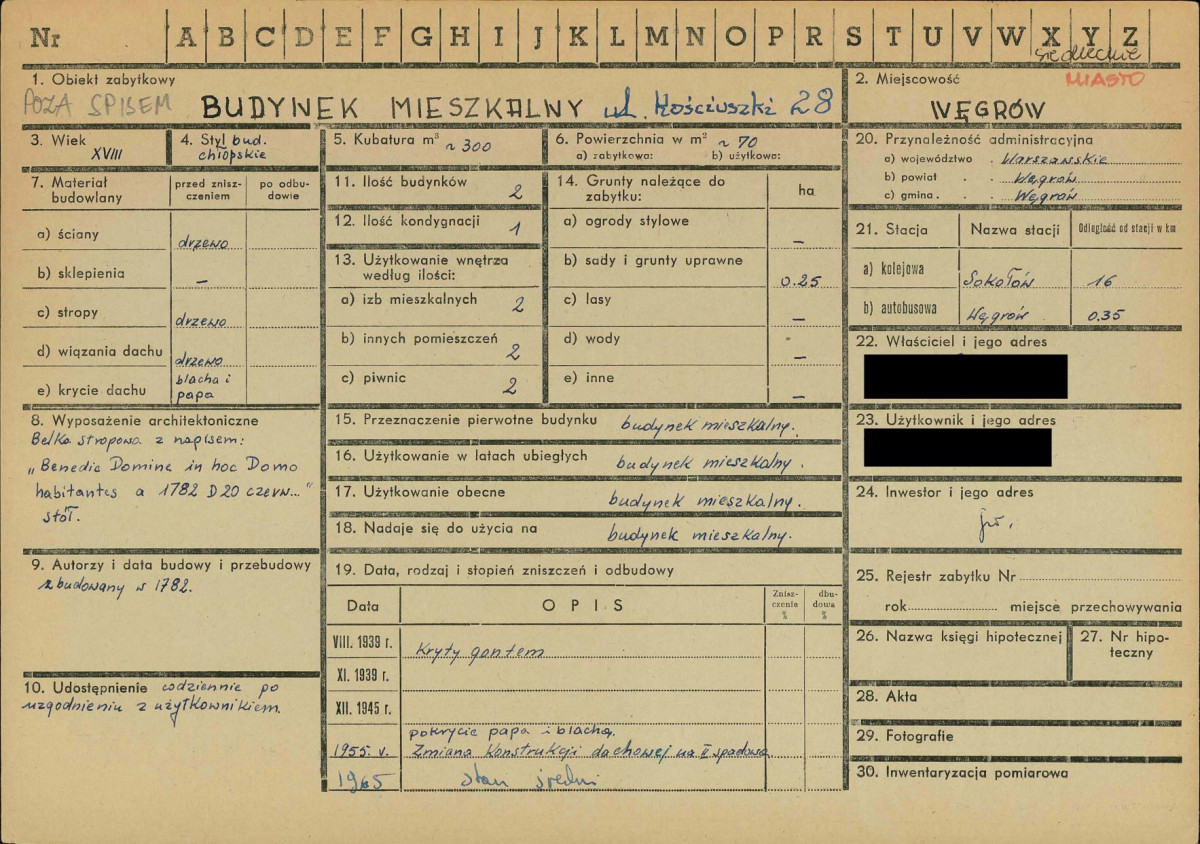 Nr A B C D E F G H I J K L M N O P R S T U V W X Y Z
siedleckie
1. Obiekt zabytkowy
POZA SPISEM BUDYNEK MIESZKALNY ul. Kościuszki 28
2. Miejscowość
MIASTO
WĘGRÓW
3. Wiek
XVIII
4. Styl bud.
chłopskie
5. Kubatura m³ ~ 300
6. Powierzchnia w m² ~ 70
a) zabytkowa: b) użytkowa:
7. Materiał budowlany
przed zniszczeniem
po odbudowie
a) ściany drzewo
b) sklepienia –
c) stropy drzewo
d) wiązania dachu drzewo
e) krycie dachu blacha i
papa
8. Wyposażenie architektoniczne
Belka stropowa z napisem:
„Benedic Domine in hoc Domo
habitantes a 1782 D 20 czerw..."
stół.
9. Autorzy i data budowy i przebudowy
zbudowany w 1782.
10. Udostępnienie codziennie po
uzgodnieniu z użytkownikiem.
11. Ilość budynków 2
12. Ilość kondygnacji 1
13. Użytkowanie wnętrza
według ilości:
a) izb mieszkalnych 2
b) innych pomieszczeń 2
c) piwnic 2
14. Grunty należące do
zabytku:
ha
a) ogrody stylowe –
b) sady i grunty uprawne 0.25
c) lasy –
d) wody –
e) inne –
15. Przeznaczenie pierwotne budynku budynek mieszkalny.
16. Użytkowanie w latach ubiegłych budynek mieszkalny.
17. Użytkowanie obecne budynek mieszkalny.
18. Nadaje się do użycia na budynek mieszkalny.
19. Data, rodzaj i stopień zniszczeń i odbudowy
Data
OPIS
Znisz-
czenia
%
dbu-
dowa
%
VIII. 1939 r. Kryty gontem
XI. 1939 r.
XII. 1945 r.
pokrycie papa i blachą.
1955. v. Zmiana konstrukcji dachowej na II spadową
1965 stan średni
20. Przynależność administracyjna
a) województwo . Warszawskie
b) powiat . . Węgrów
c) gmina . . . Węgrów
21. Stacja
Nazwa stacji
Odległość od stacji w km
a) kolejowa Sokołów 16
b) autobusowa Węgrów 0.35
22. Właściciel i jego adres
23. Użytkownik i jego adres
24. Inwestor i jego adres
25. Rejestr zabytku Nr
rok miejsce przechowywania
26. Nazwa księgi hipotecznej
27. Nr hipo-
teczny
28. Akta
29. Fotografie
30. Inwentaryzacja pomiarowa